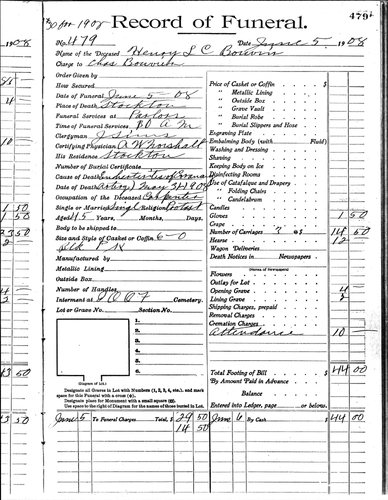 30 for 1908 Record of Funeral. 479
No. 479 Date June 5 1908
Name of the Deceased Henry L C
Charge to Chas
Order Given by
How Secured
Date of Funeral June 5-08
Place of Death Stockton
Funeral Services at Parlors
Time of Funeral Services 10 A M
Clergyman J
Certifying Physician A W
His Residence Stockton
Number of Burial Certificate
Cause of Death
Date of Death May 1908
Occupation of the Deceased Carpenter
Single or Married Single Religion Protest
Aged 45 Years, Months, Days.
Body to be shipped to
Size and Style of Casket or Coffin 6-0
Manufactured by
Metallic Lining
Outside Box
Number of Handles
Interment at I O O F Cemetery.
Lot or Grave No. Section No.
1.
2.
3.
4.
5.
6.
(Diagram of Lot.)
Designate all Graves in Lot with Numbers (1, 2, 3, 4, etc.), and mark
space for this Funeral with a cross (+).
Designate place for Monument with a small square (□).
Use space to the right of Diagram for the names of those buried in Lot.
Price of Casket or Coffin $
" Metallic Lining
" Outside Box
" Grave Vault
" Burial Robe
" Burial Slippers and Hose
Engraving Plate
Embalming Body (with Fluid)
Washing and Dressing
Shaving
Keeping Body on Ice
Disinfecting Rooms
Use of Catafalque and Drapery
" Folding Chairs
" Candelabrum
Candles
Gloves 1 50
Crape
Number of Carriages 3 @ $ 14 50
Hearse 12
Wagon Deliveries
Death Notices in Newspapers
(Names of Newspapers)
Flowers
Outlay for Lot
Opening Grave 4
Lining Grave 2
Shipping Charges, prepaid
Removal Charges
Cremation Charges
Attendance 10
Total Footing of Bill $ 44 00
By Amount Paid in Advance
Balance
Entered into Ledger, page or below.
June 5 To Funeral Charges Total, $ 29 50 June 6 By Cash $ 44 00
14 50